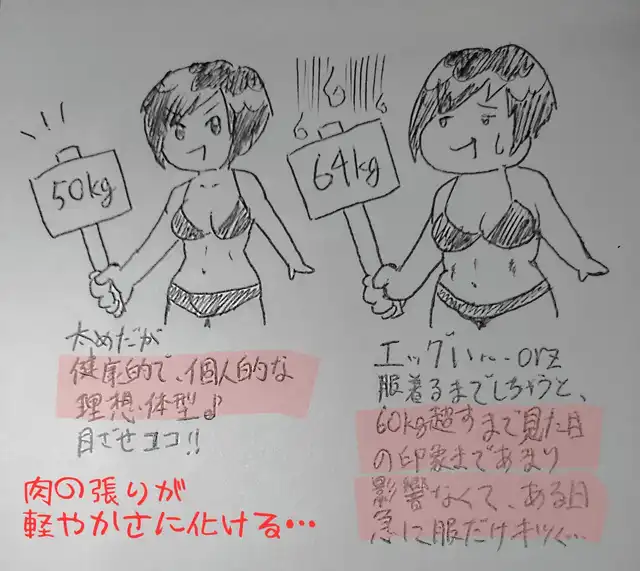 50kg
64kg
太めだが
健康的で、個人的な
理想体型♪
目ざせココ!!
肉の張りが
軽やかさに化ける…
エッグい…orz
服着るまでしちゃうと、
60kg超すまで見た目
の印象まであまり
影響なくて、ある日
急に服だけキツく…